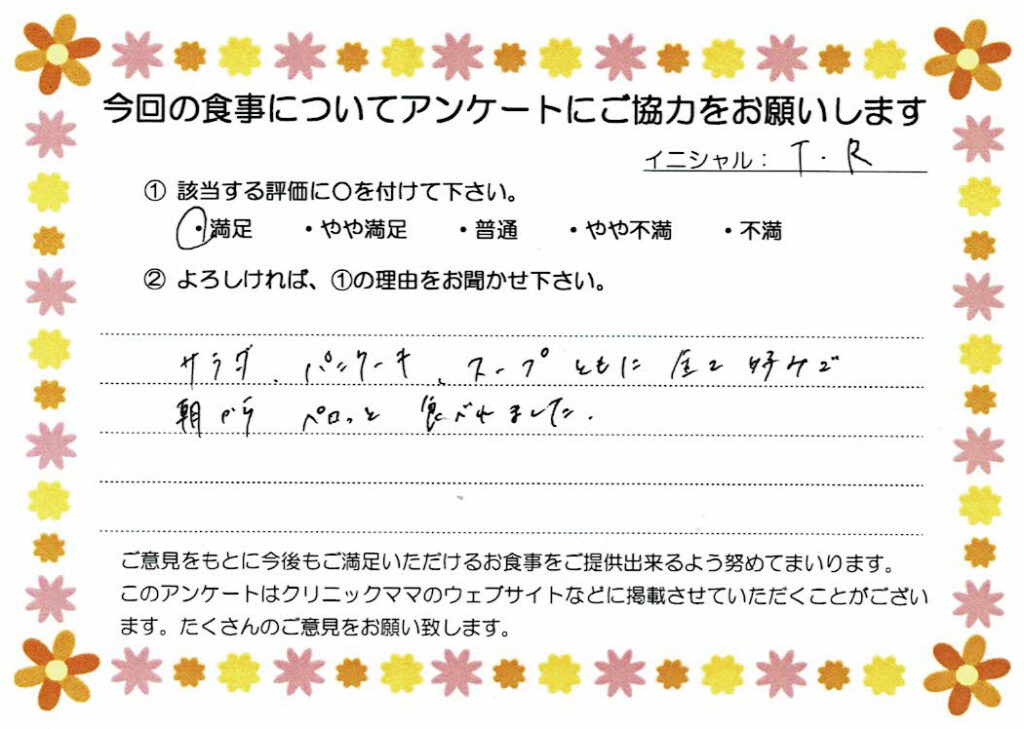 今回の食事についてアンケートにご協力をお願いします
イニシャル： T．R
① 該当する評価に〇を付けて下さい。
・満足 ・やや満足 ・普通 ・やや不満 ・不満
② よろしければ、①の理由をお聞かせ下さい。
サラダ、パンケーキ、スープともに 好みで
朝から ペロっと 食べれました．
ご意見をもとに今後もご満足いただけるお食事をご提供出来るよう努めてまいります。
このアンケートはクリニックママのウェブサイトなどに掲載させていただくことがござい
ます。たくさんのご意見をお願い致します。